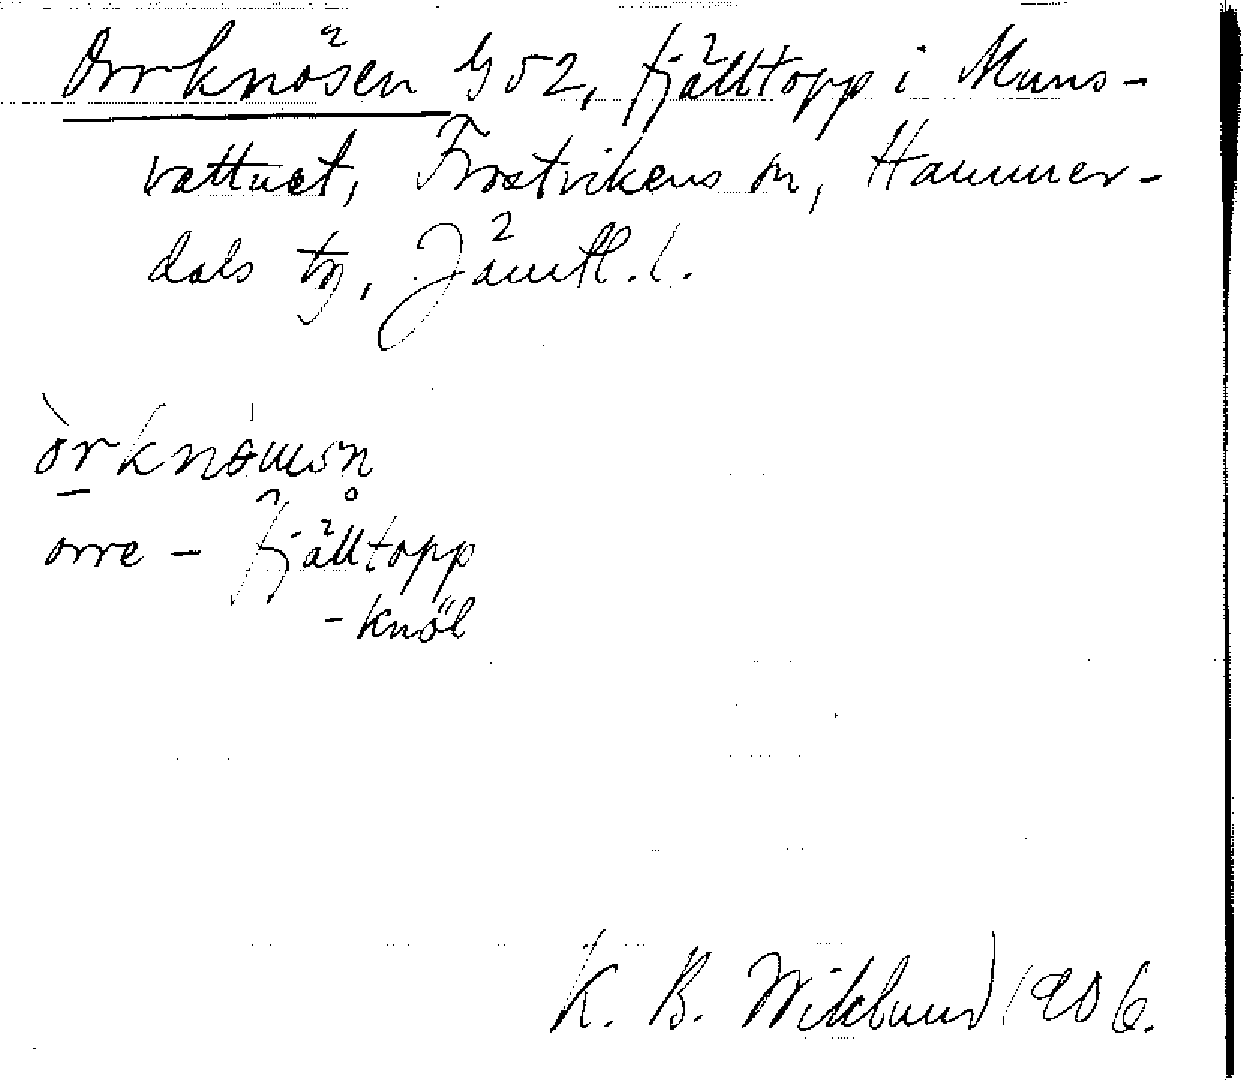 Orrknösen G52, fjälltopp i Muns-
vattnet, Frostvikens sn, Hammer-
dals tg, Jämtl. l.
orre - fjälltopp
- knöl
K. B. Wiklund 1906.